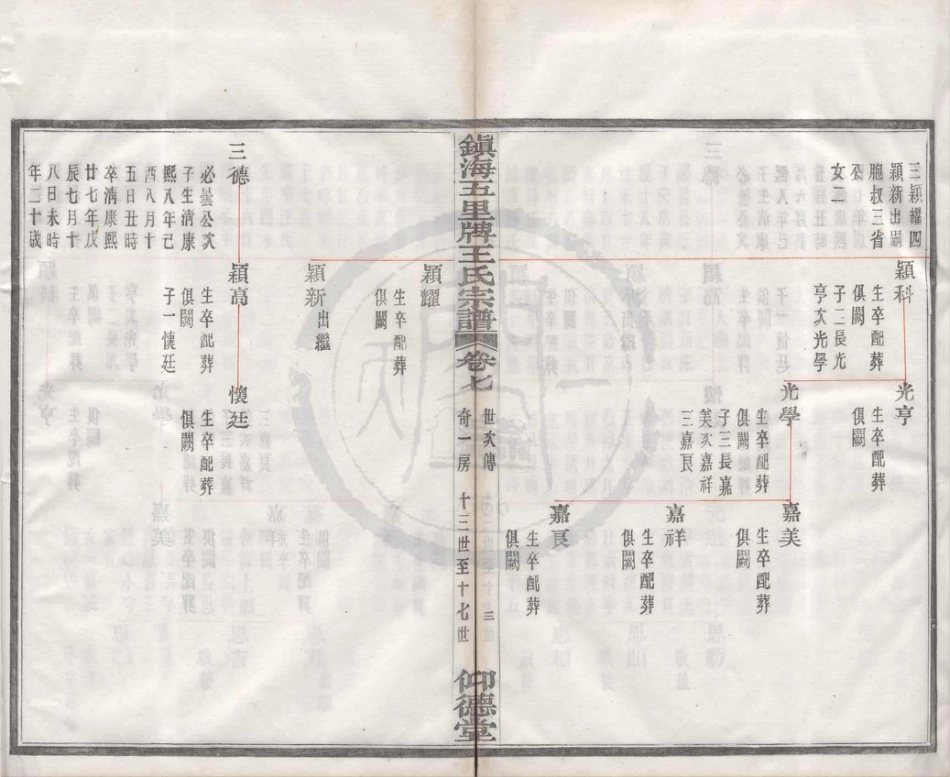 三穎耀四
穎新出嗣
胞叔三省
公
女二
穎科
生卒配葬
俱闕
子二長光
亨次光學
光亨
生卒配葬
俱闕
光學
生卒配葬
俱闕
子三長嘉
美次嘉祥
三嘉良
嘉美
生卒配葬
俱闕
嘉祥
生卒配葬
俱闕
嘉良
生卒配葬
俱闕
鎮海五里牌王氏宗譜
卷七
世次傳
奇一房
十三世至十七世
三
仰德堂
穎耀
生卒配葬
俱闕
穎新出繼
三德
必雲公次
子生清康
熙八年己
酉八月十
五日丑時
卒清康熙
廿七年戊
辰七月十
八日未時
年二十歲
穎高
生卒配葬
俱闕
子一懷廷
懷廷
生卒配葬
俱闕